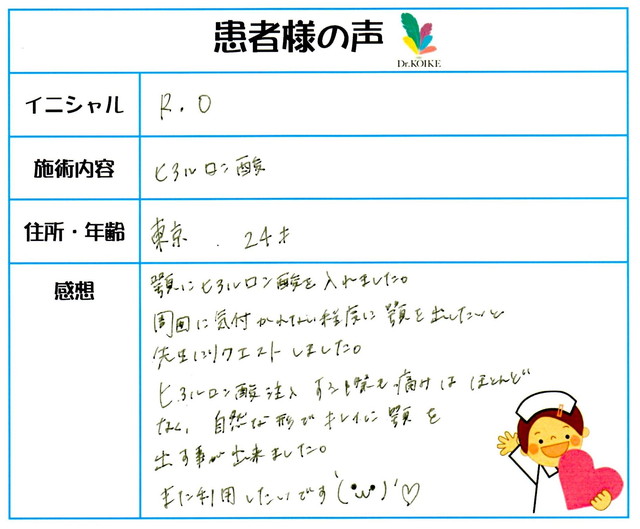 患者様の声
Dr.KOIKE
イニシャル
R.O
施術内容
ヒアルロン酸
住所・年齢
東京 . 24才
感想
顎にヒアルロン酸を入れました。
周囲に気付かれない程度に顎を出したいと
先生にリクエストしました。
ヒアルロン酸注入する際も痛みはほとんど
なく、自然な形でキレイに顎を
出す事が出来ました。
また利用したいです(・ω・)♡